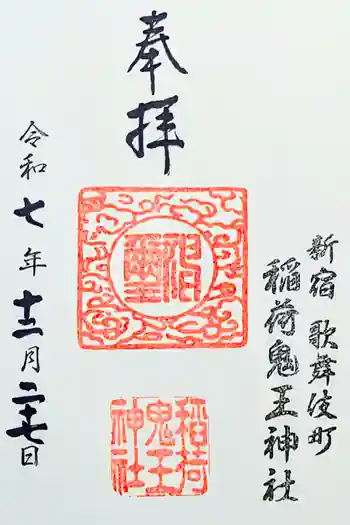 奉拝
新宿 歌舞伎町
稲荷鬼王神社
稲荷
鬼王
神社
令和七年十二月二十七日